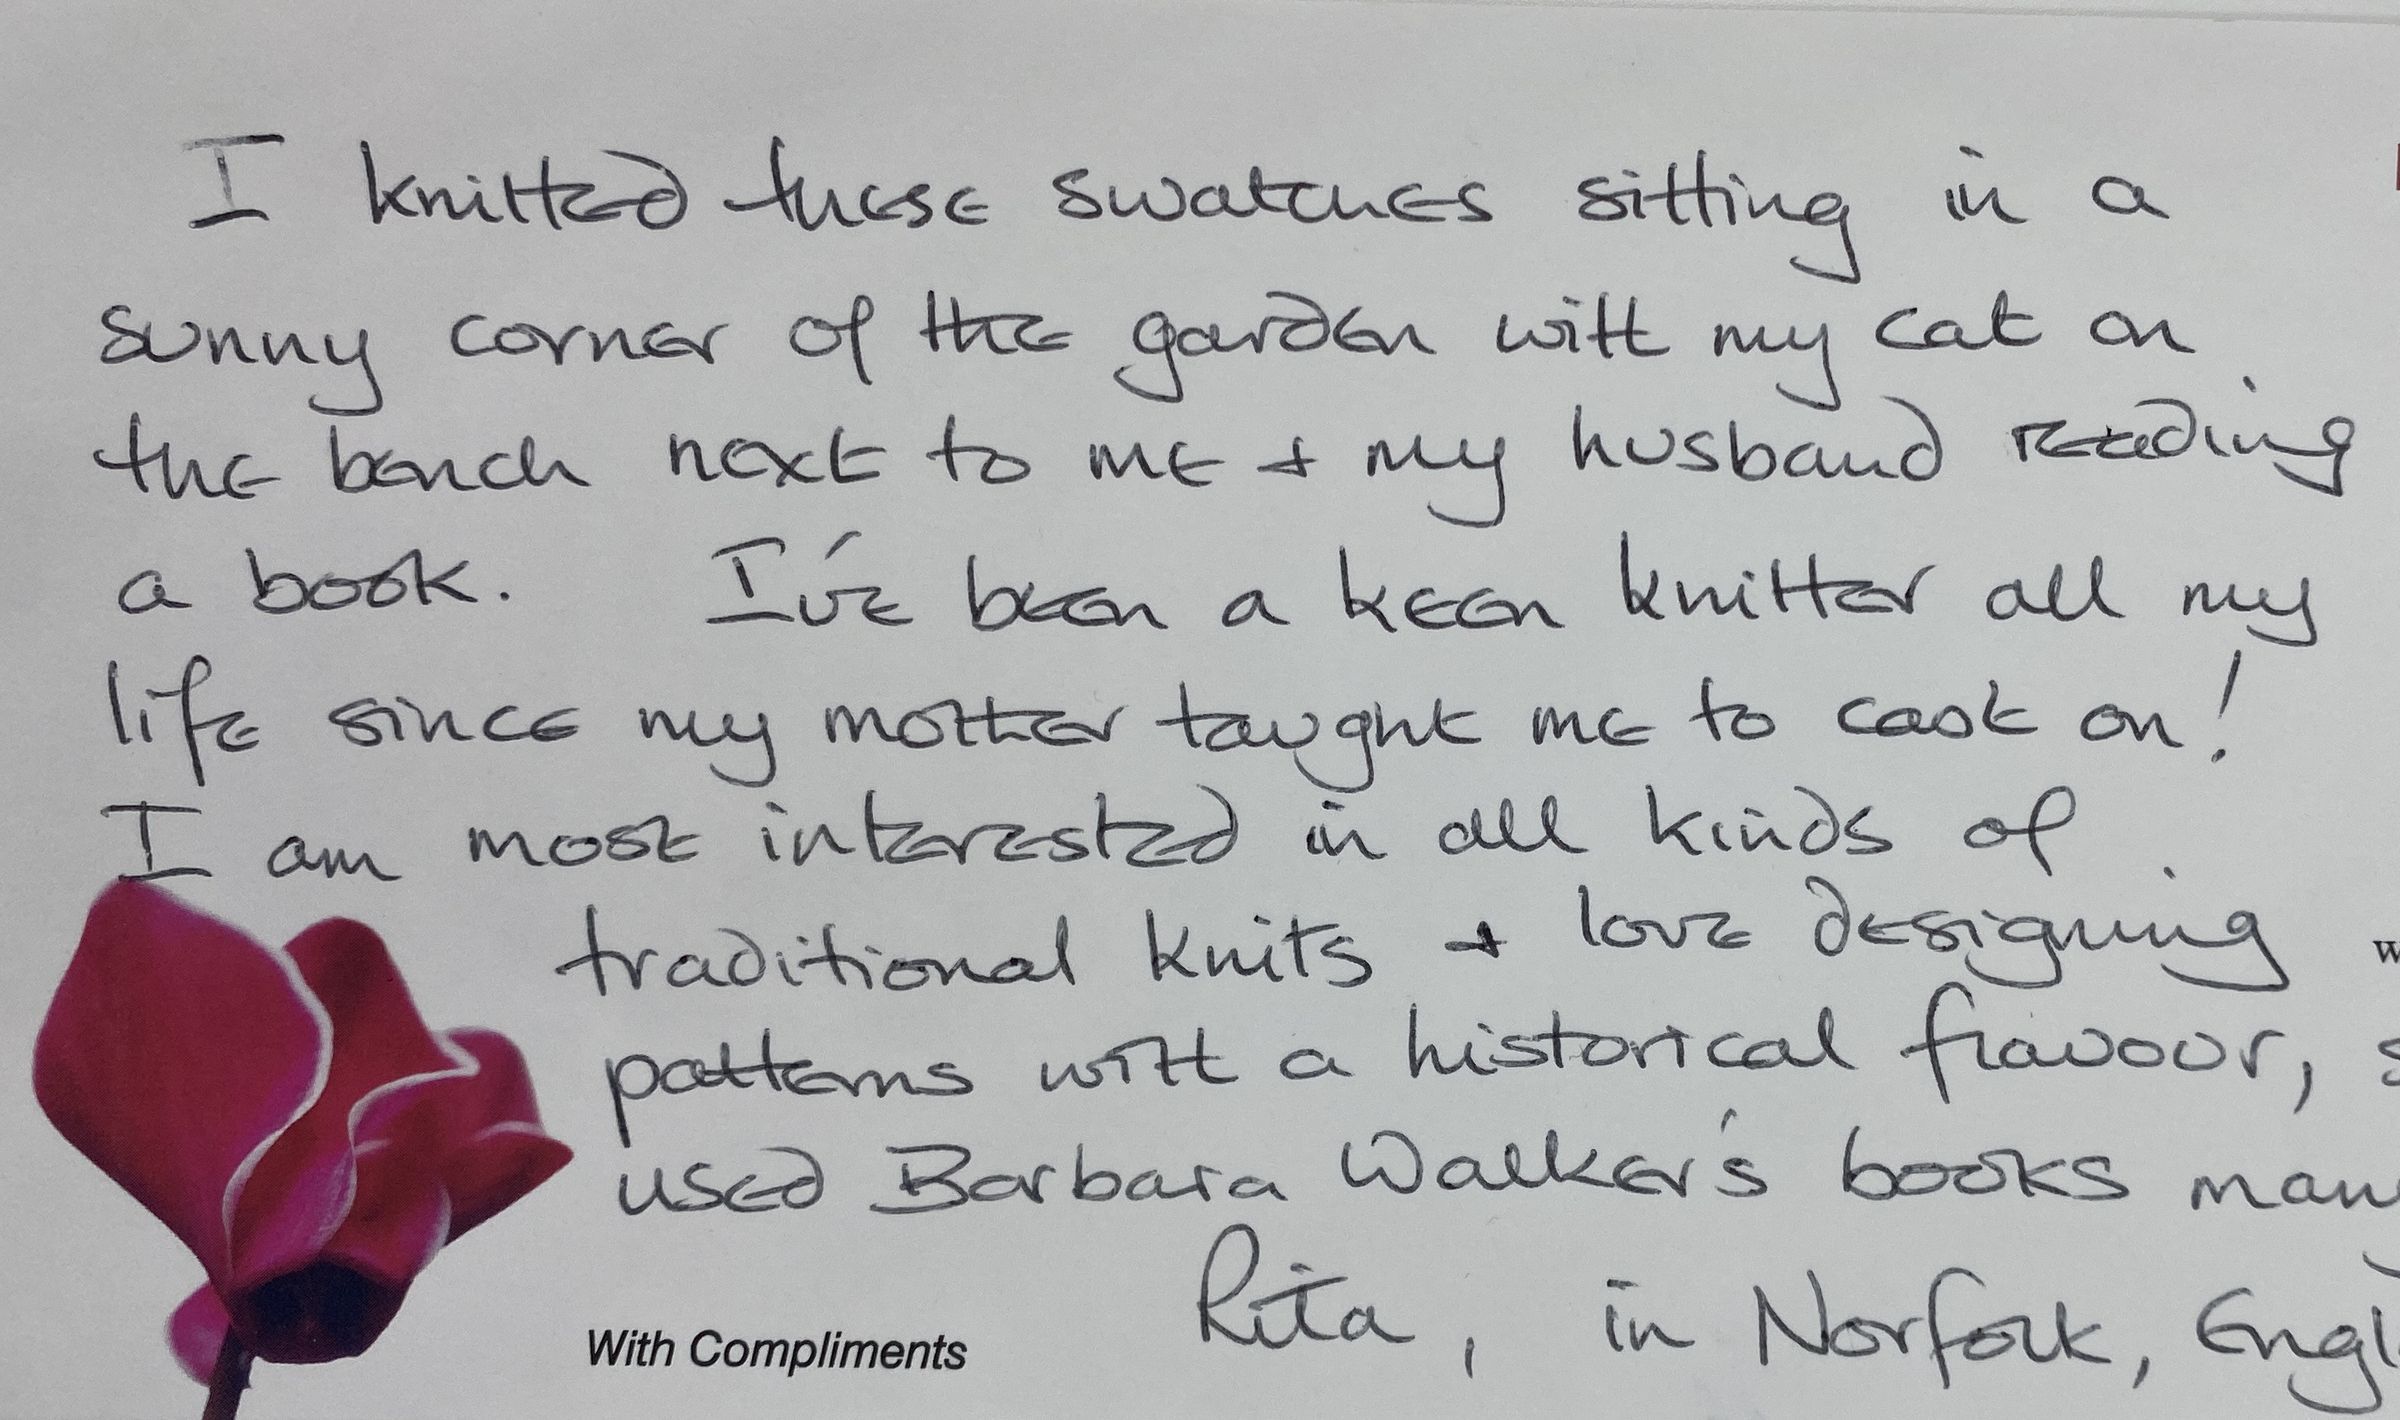 I knitted these swatches sitting in a
sunny corner of the garden with my cat on
the bench next to me + my husband reading
a book. I've been a keen knitter all my
life since my mother taught me to cast on!
I am most interested in all kinds of
traditional knits + love designing
patterns with a historical flavour, s
used Barbara Walker's books many
Rita, in Norfolk, Engl
With Compliments